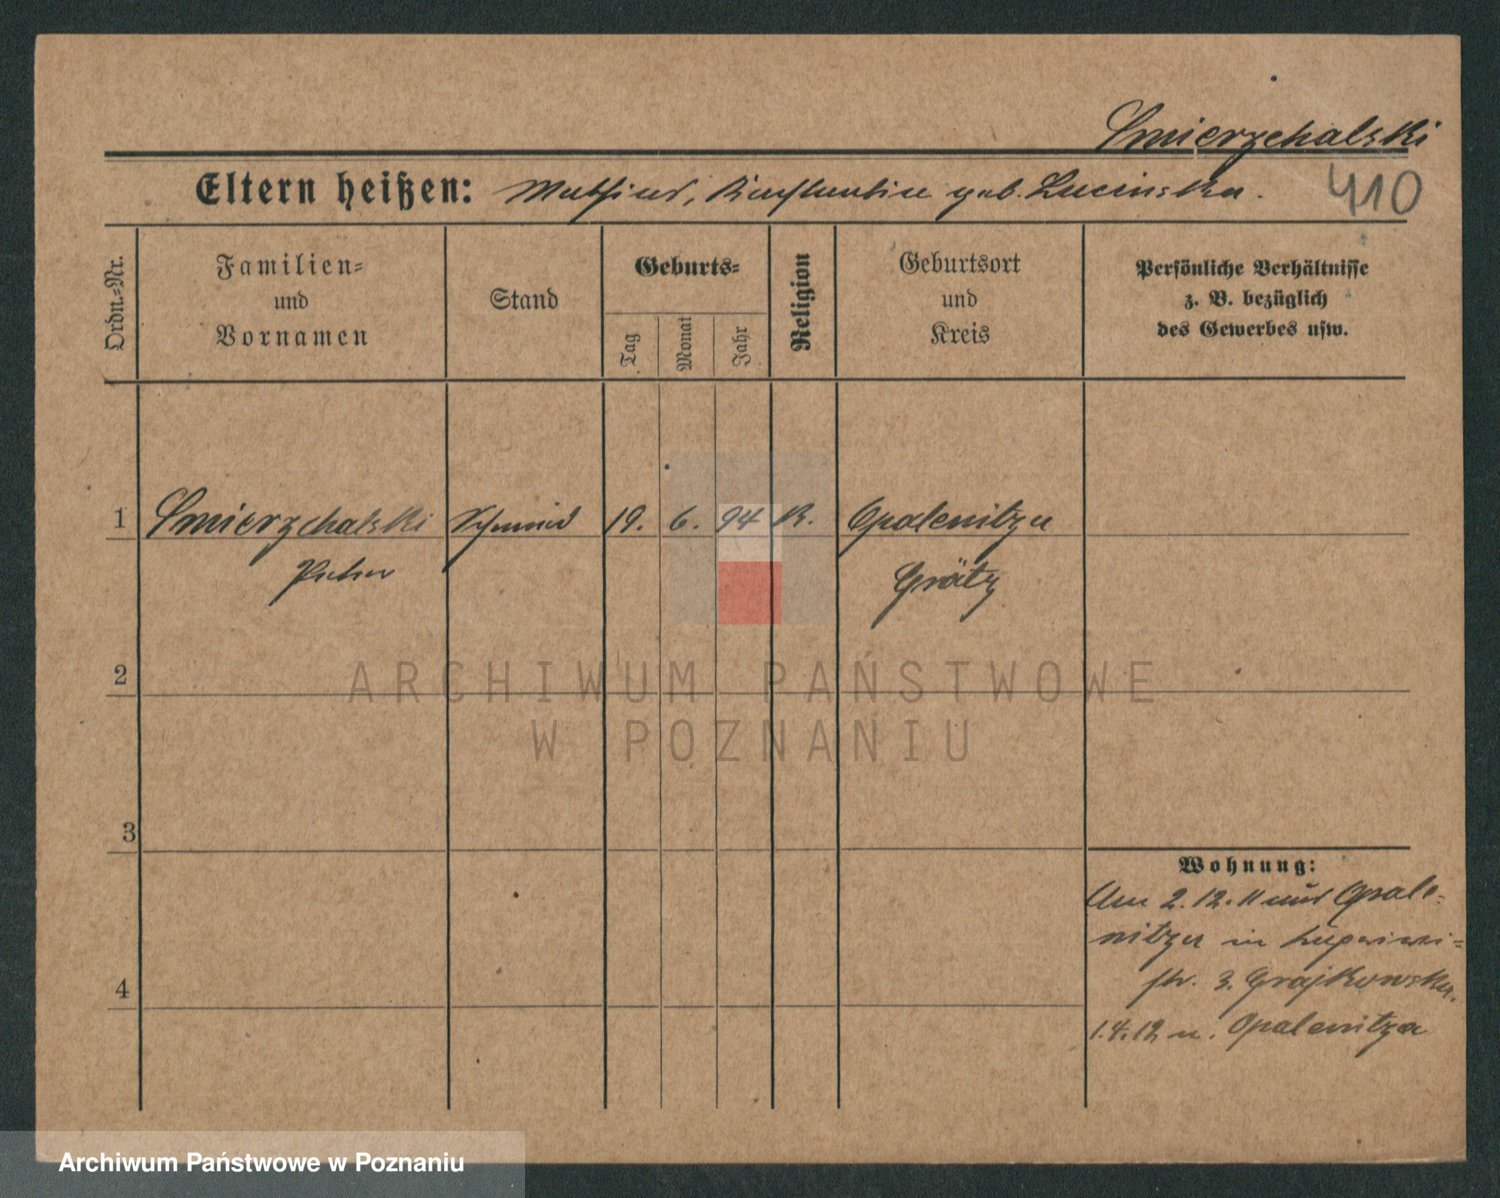 Smierzchalski
Eltern heißen: Mathias, Konstantine geb. Lucinska.
410
Ordn.=Nr.
Familien=
und
Vornamen
Stand
Geburts=
Tag
Monat
Jahr
Religion
Geburtsort
und
Kreis
Persönliche Verhältnisse
z. B. bezüglich
des Gewerbes usw.
1 Smierzchalski Schmied 19. 6. 94 K. Opalenitza
Peter Grätz
2
ARCHIWUM PAŃSTWOWE
W POZNANIU
3
Wohnung:
Am 2.12.11 aus Opale-
nitza in
str. 3. Grajkowska.
4
1.4.12 n. Opalenitza
Archiwum Państwowe w Poznaniu